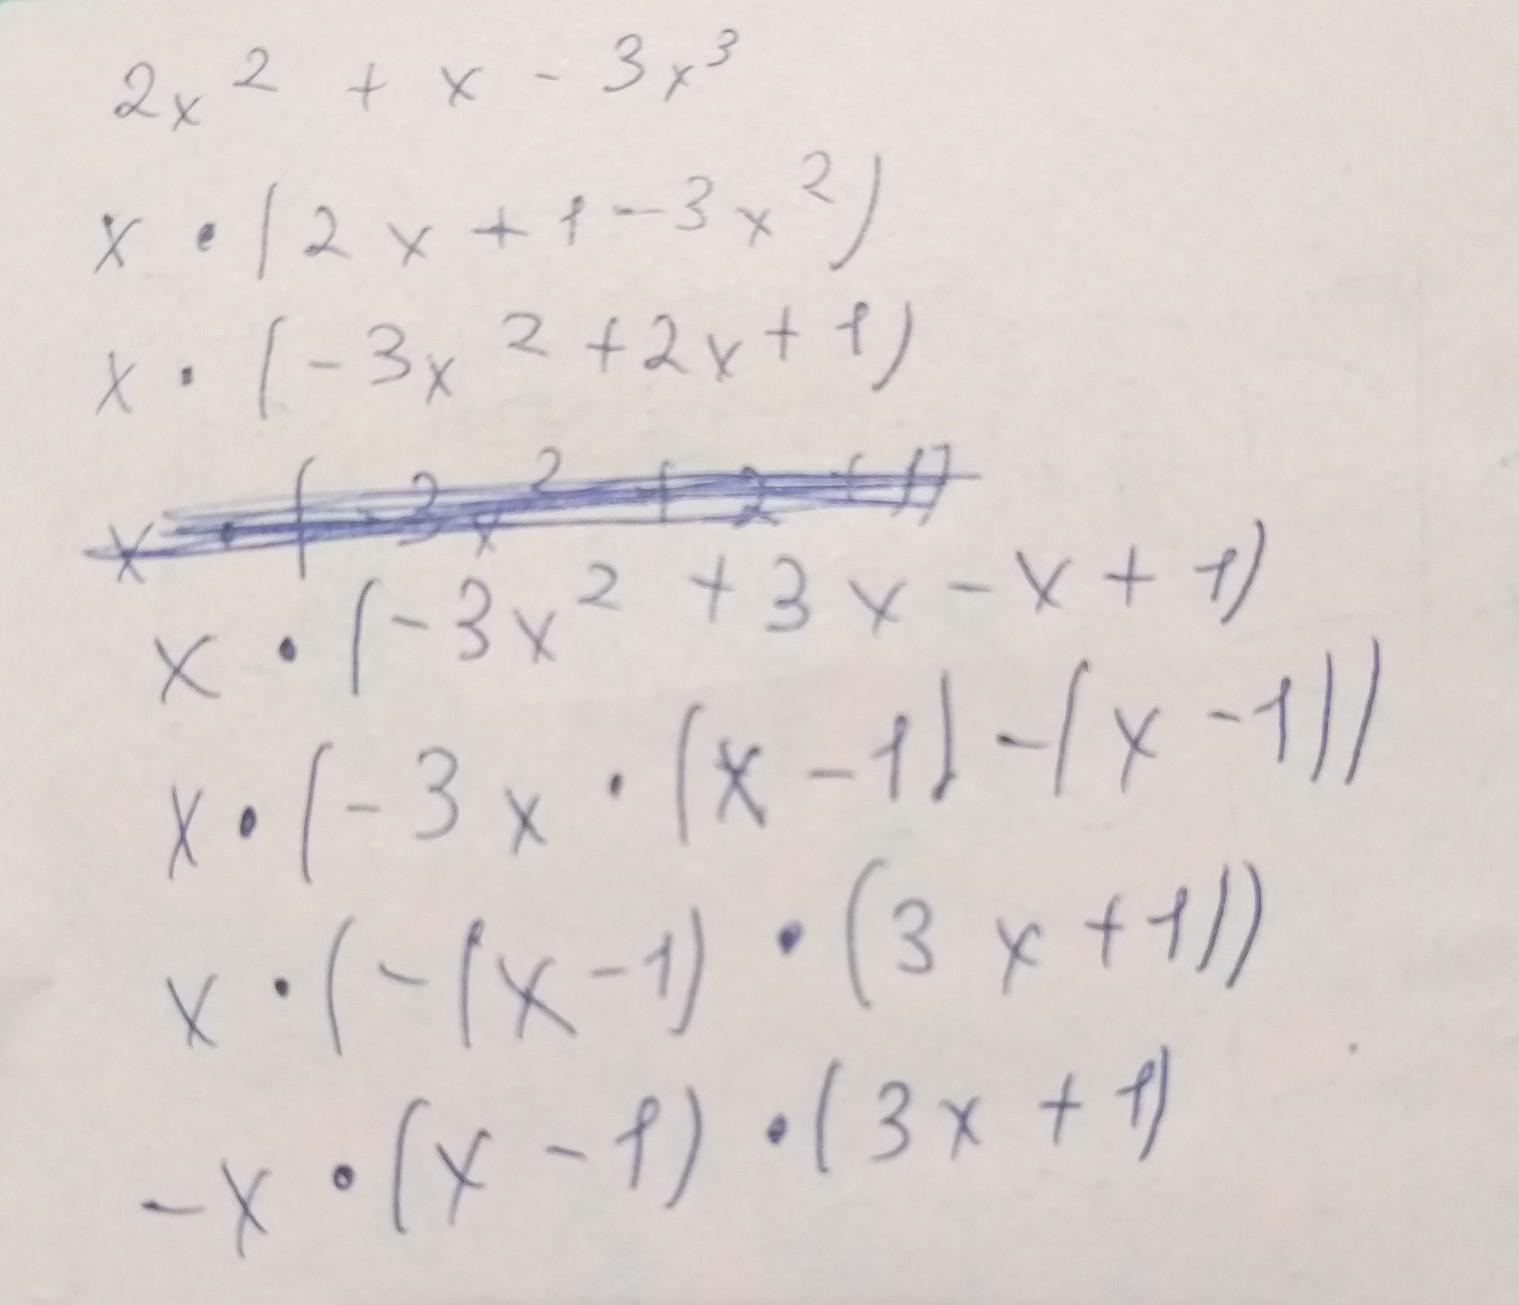 2x² + x - 3x³
x · (2x + 1 - 3x²)
x · (-3x² + 2x + 1)
x · (-3x² + 3x - x + 1)
x · (-3x · (x - 1) - (x - 1))
x · (-(x - 1) · (3x + 1))
-x · (x - 1) · (3x + 1)